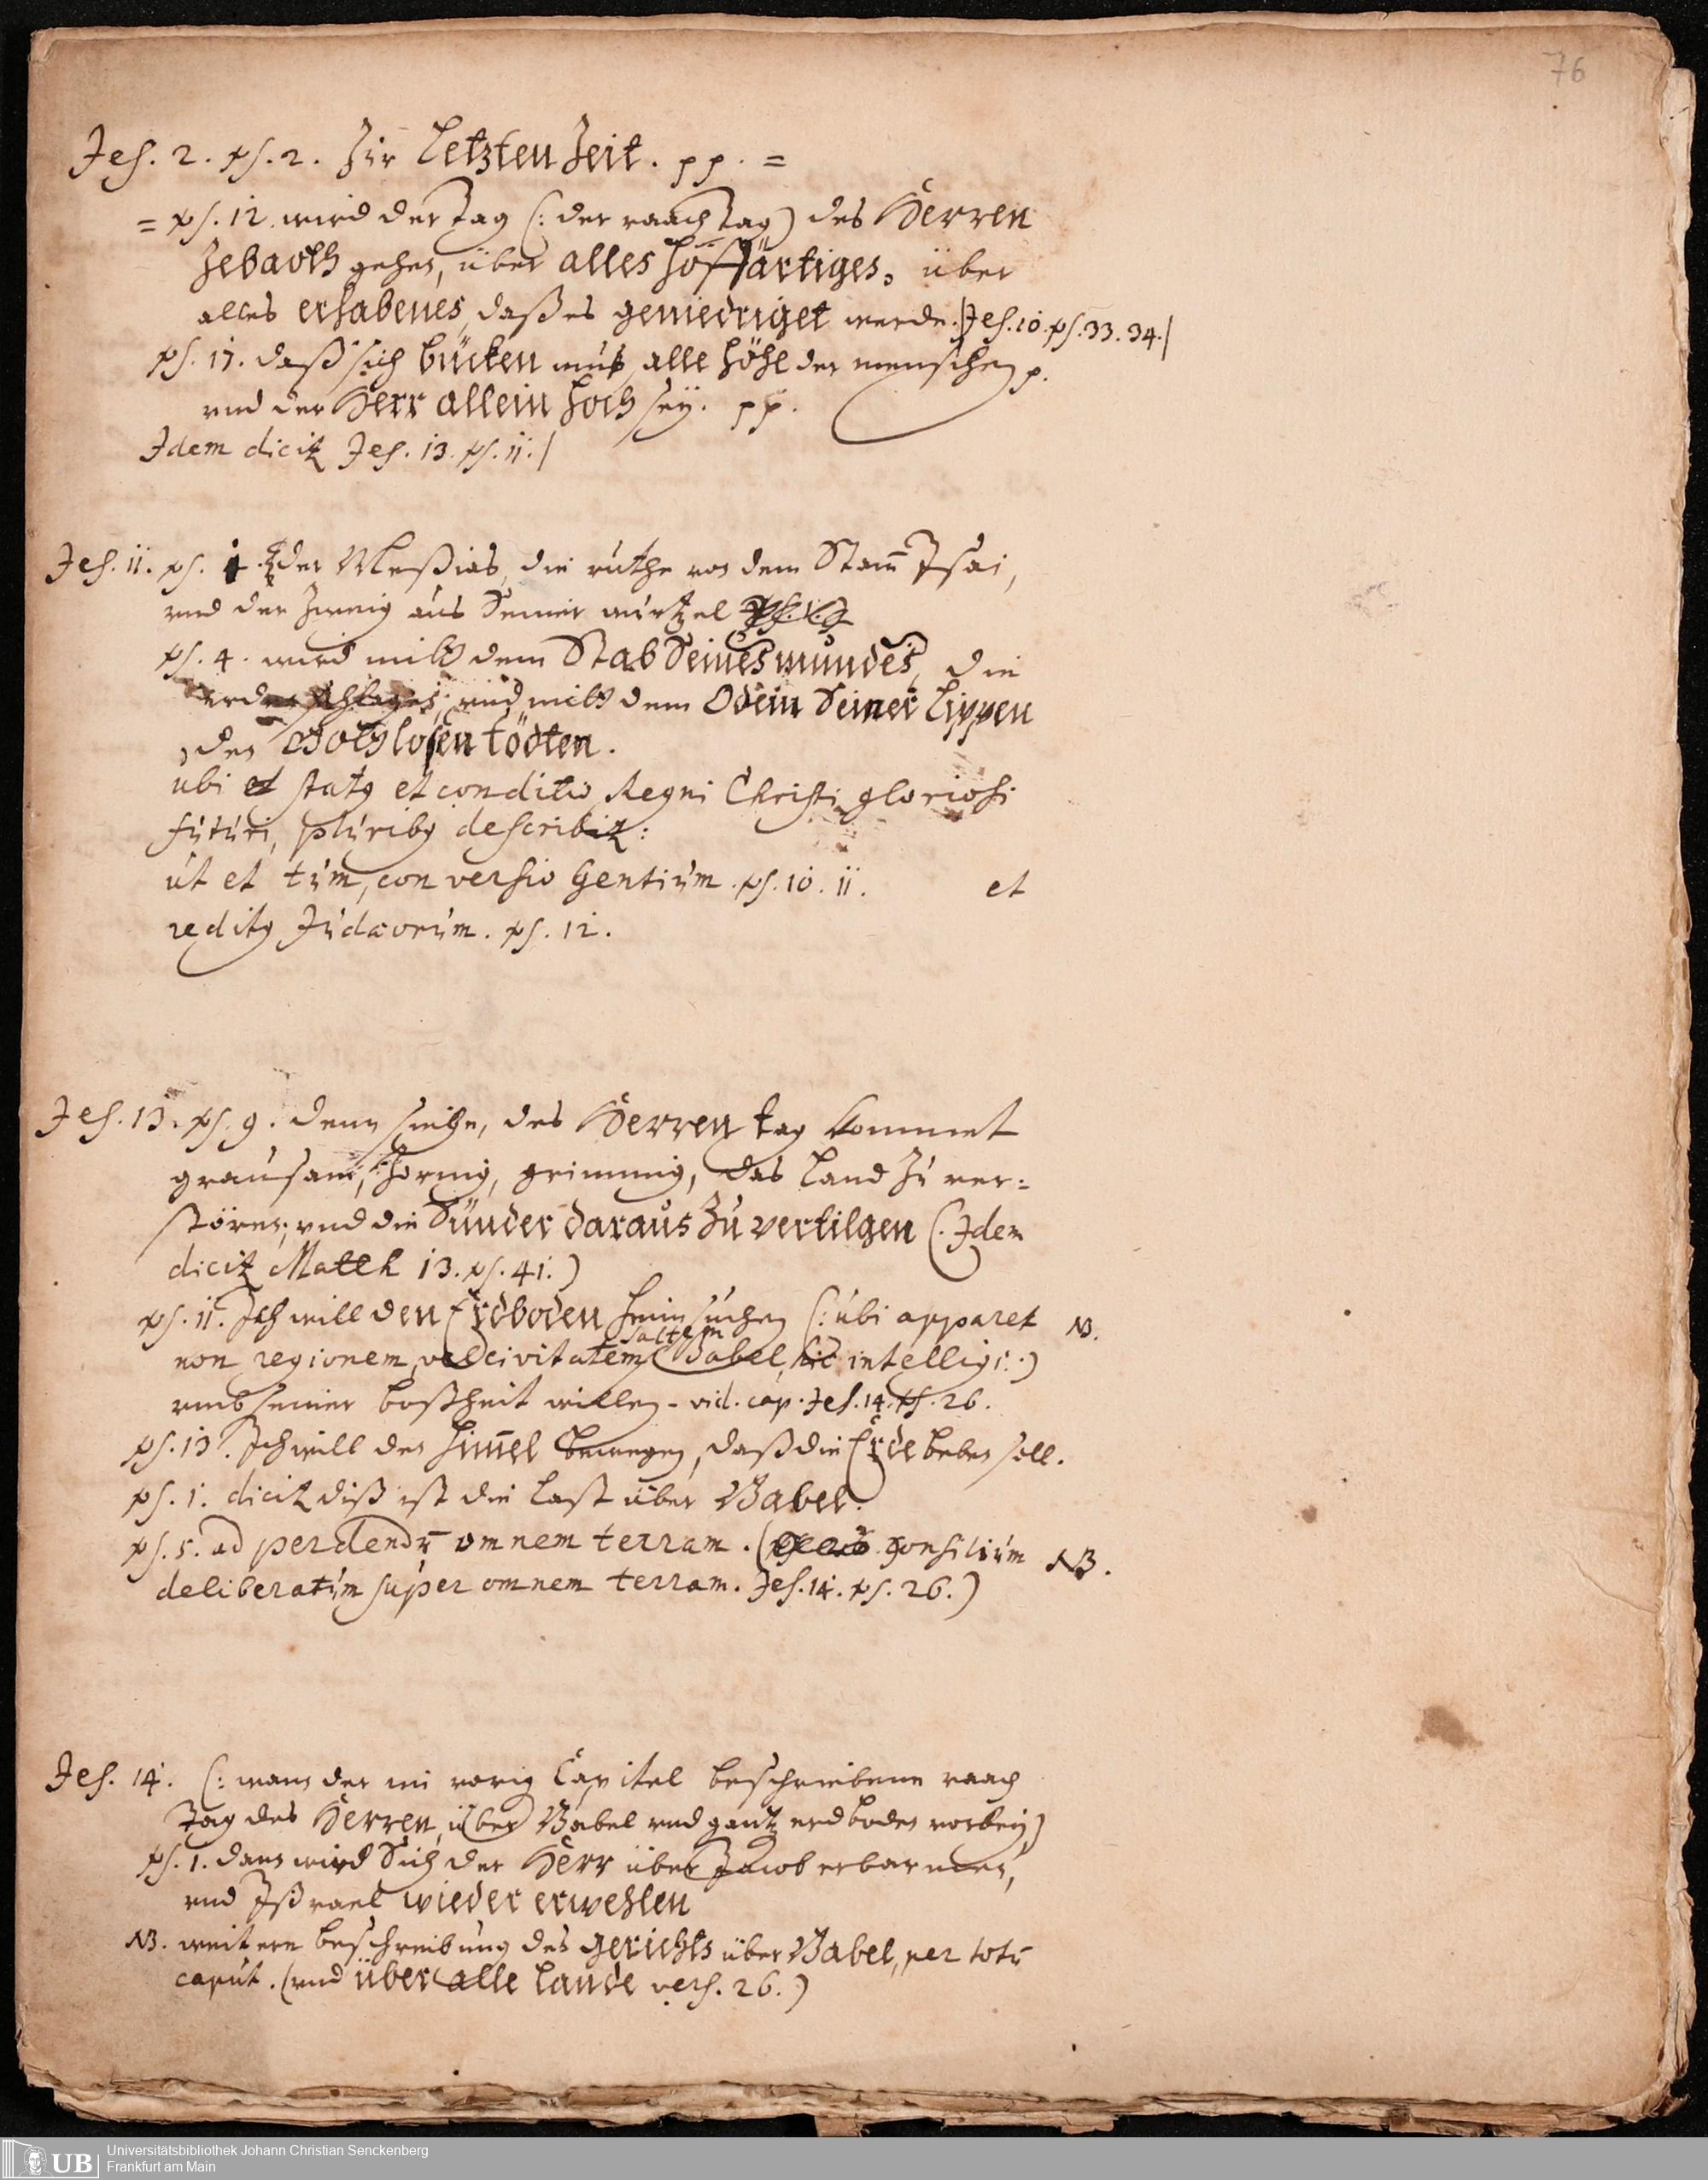 76
Jes. 2. vs. 2. Zur Letzten Zeit. pp. =
= vs. 12. wird der Tag (: der raach Tag) des Herren
Zebaoth gehen, über alles hoffärtiges, über
alles erhabenes, daß es geniedriget werde. |Jes. 10. vs. 33. 34.|
vs. 17. daß sich bücken mus alle höhe der menschen p.
und der Herr allein hoch sey. pp.
Idem dicit Jes. 13. vs. 11. |
Jes. 11. vs. 1. der Meßias, die ruthe von dem Stam̄ Isai,
und der Zweig aus Seiner wurtzel
vs. 4. wird mitt dem Stab Seines mundes, die
erde schlagen, und mitt dem Odem Seiner Lippen
den Gottlosen tödten.
ubi et status et conditio Regni Christi gloriosi
futuri, pluribus describit:
ut et tum, conversio Gentium. vs. 10. 11. et
reditus Judæorum. vs. 12.
Jes. 13. vs. 9. denn siehe, des Herren tag kommet
grausam, zornig, grimmig, das Land zu ver=
stören, und die Sünder daraus zu vertilgen (: Idem
dicit Matth 13. vs. 41.)
vs. 11. Ich will den Erdboden heimsuchen (: ubi apparet NB.
saltem
non regionem, vel civitatem Babel, hic intelligi:)
umb seiner boßheit willen - vid. cap. Jes. 14. vs. 26.
vs. 13. Ich will den Him̄el bewegen, daß die Erde beben soll.
vs. 1. dicit diß ist die Last über Babel.
vs. 5. ad perdendū omnem terram. ( consilium NB.
deliberatum super omnem terram. Jes. 14. vs. 26.)
Jes. 14. (: wann der im vorig Capitel beschriebene raach
Tag des Herren, über Babel und gantz erdboden vorbey)
vs. 1. dann wird Sich der Herr über Jacob erbarmen,
und Ißrael wieder erwehlen
NB. weitere beschreibung des gerichts über Babel, per totū
caput. (und über alle Lande vers. 26.)
UB
Universitätsbibliothek Johann Christian Senckenberg
Frankfurt am Main